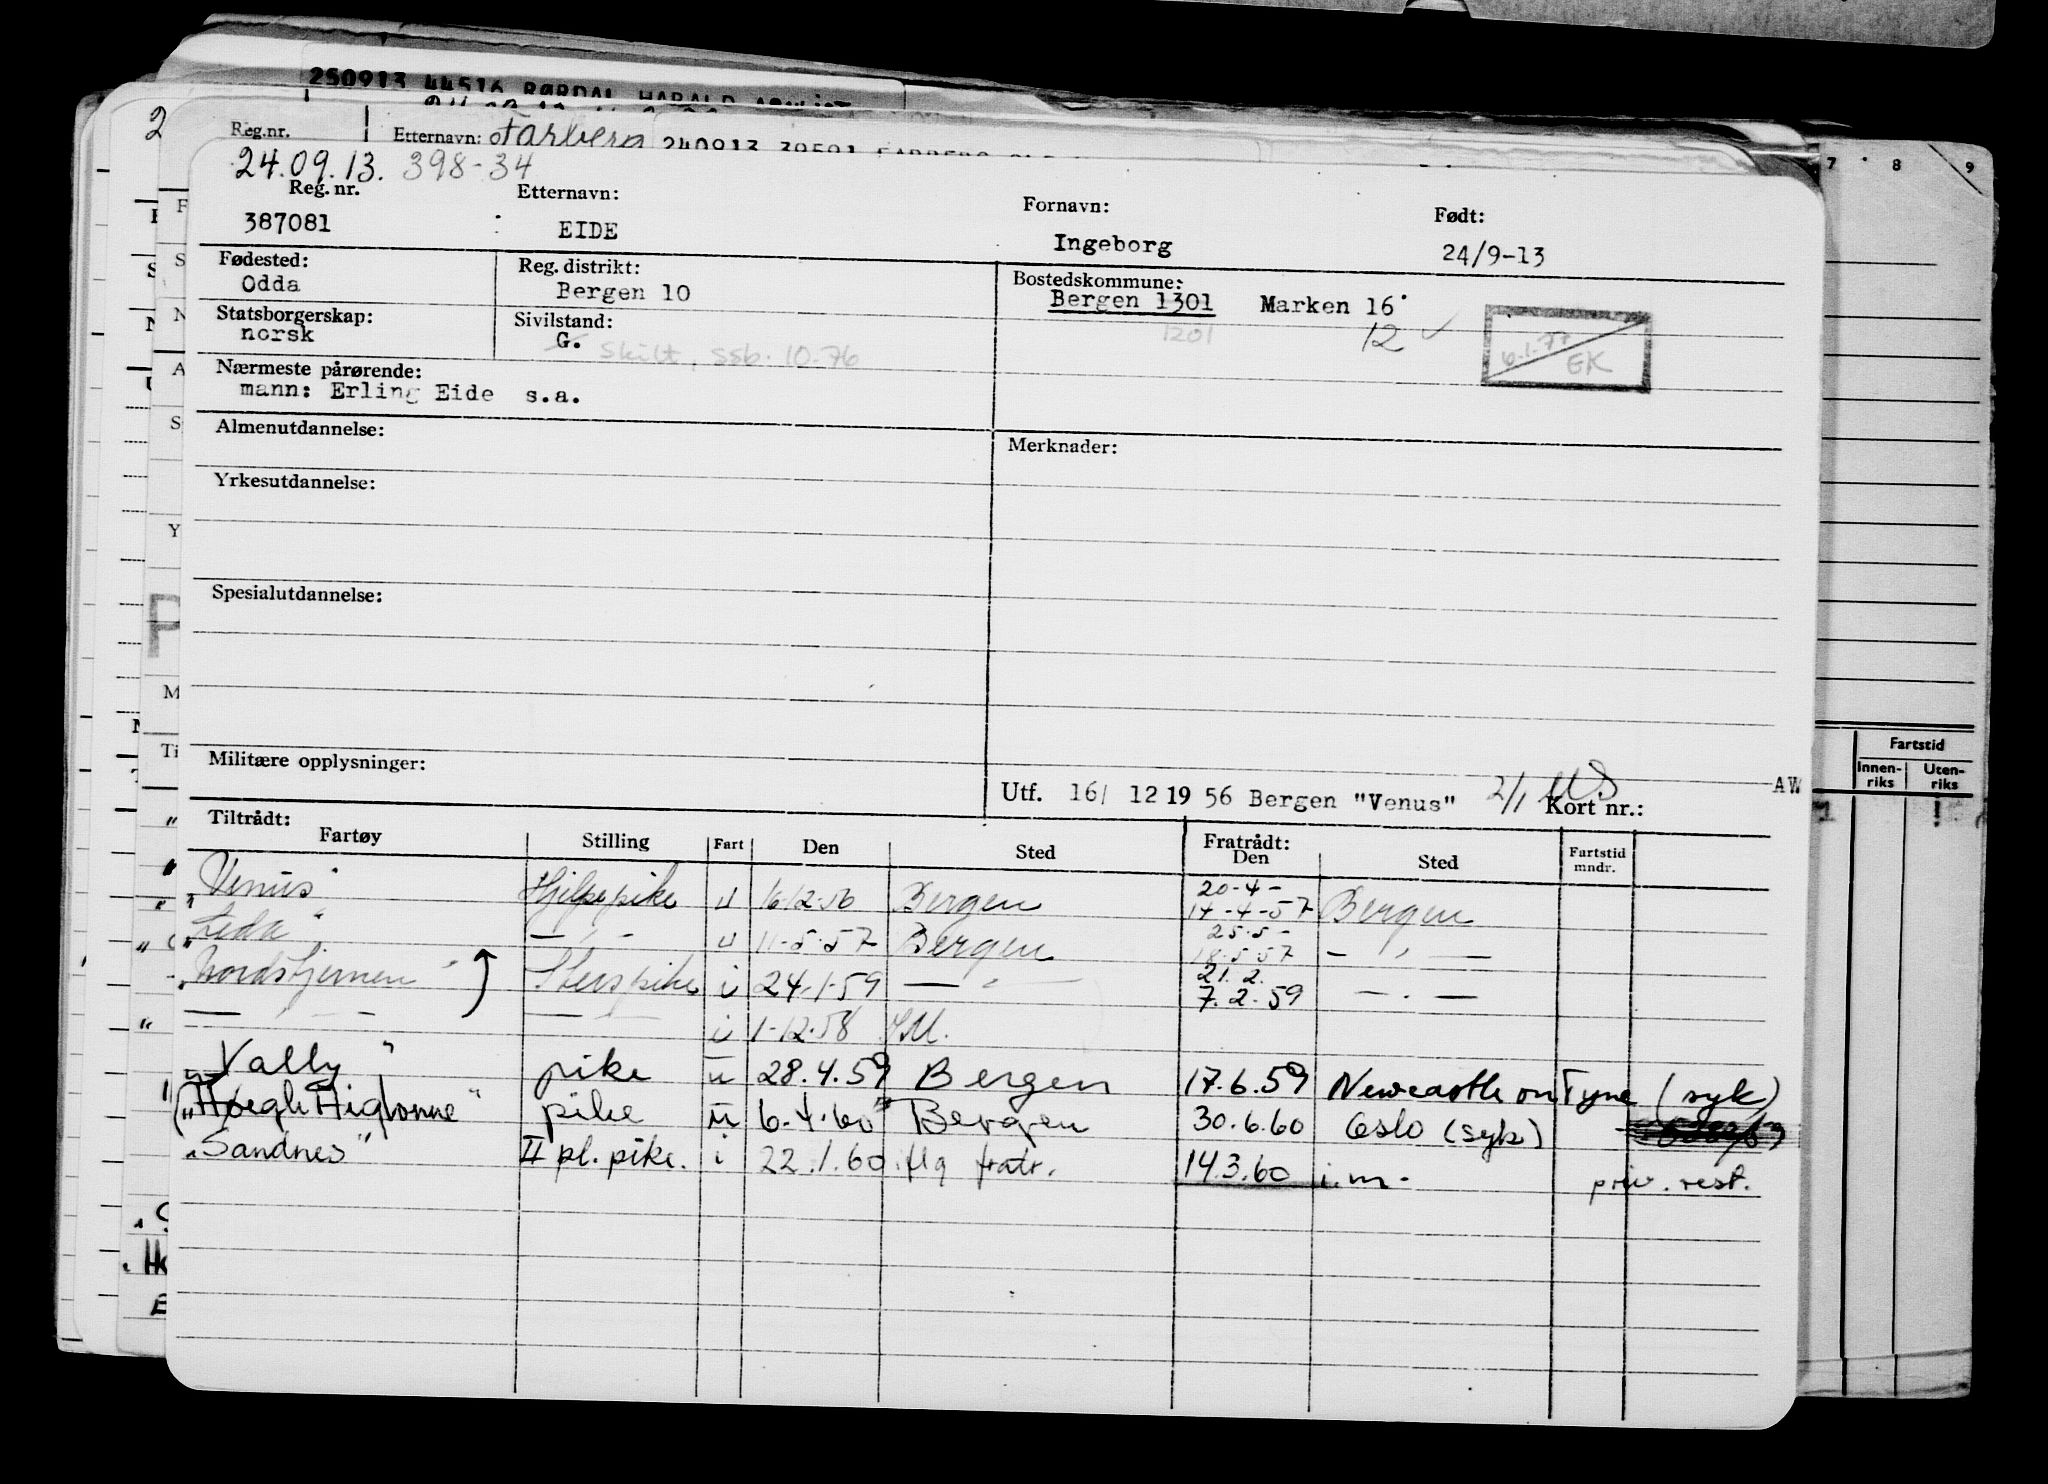 250913 44516 RØRDAL HARALD
Reg.nr. Etternavn: Farberg 240913 39591
7 8 9
24.09.13. 398-34
Reg. nr. Etternavn: Fornavn: Født:
387081 EIDE Ingeborg 24/9-13
Fødested: Reg. distrikt: Bostedskommune:
Odda Bergen 10 Bergen 1301 Marken 16
1201 12
Statsborgerskap: Sivilstand:
norsk G. skilt, ssb. 10-76
6-1-77 EK
Nærmeste pårørende:
mann: Erling Eide s.a.
Almenutdannelse: Merknader:
Yrkesutdannelse:
Spesialutdannelse:
Militære opplysninger:
Utf. 16/ 12 19 56 Bergen "Venus" 2/1 Kort nr.: AW
Fartstid
Innen-riks Uten-riks
Tiltrådt: Fratrådt:
Fartøy Stilling Fart Den Sted Den Sted Fartstid mndr.
"Venus" Hjelpepike u 16.12.56 Bergen 20-4- 14-4-57 Bergen
"Leda" — " — u 11-5-57 Bergen 25-5- 18.5.57 — " —
"Nordstjernen" Sterspike i 24.1.59 — " — 21.2. 7.2.59 — " —
— " — — i 1-12.58 I.M.
"Vally" pike u 28.4.59 Bergen 17.6.59 Newcastle on Tyne (syk)
("Höegh Aiglonne" pike u 6.4.60 Bergen 30.6.60 Oslo (syk)
"Sandnes" II pl. pike. i 22.1.60 flg fratr. 14.3.60 i.m. priv. rest.